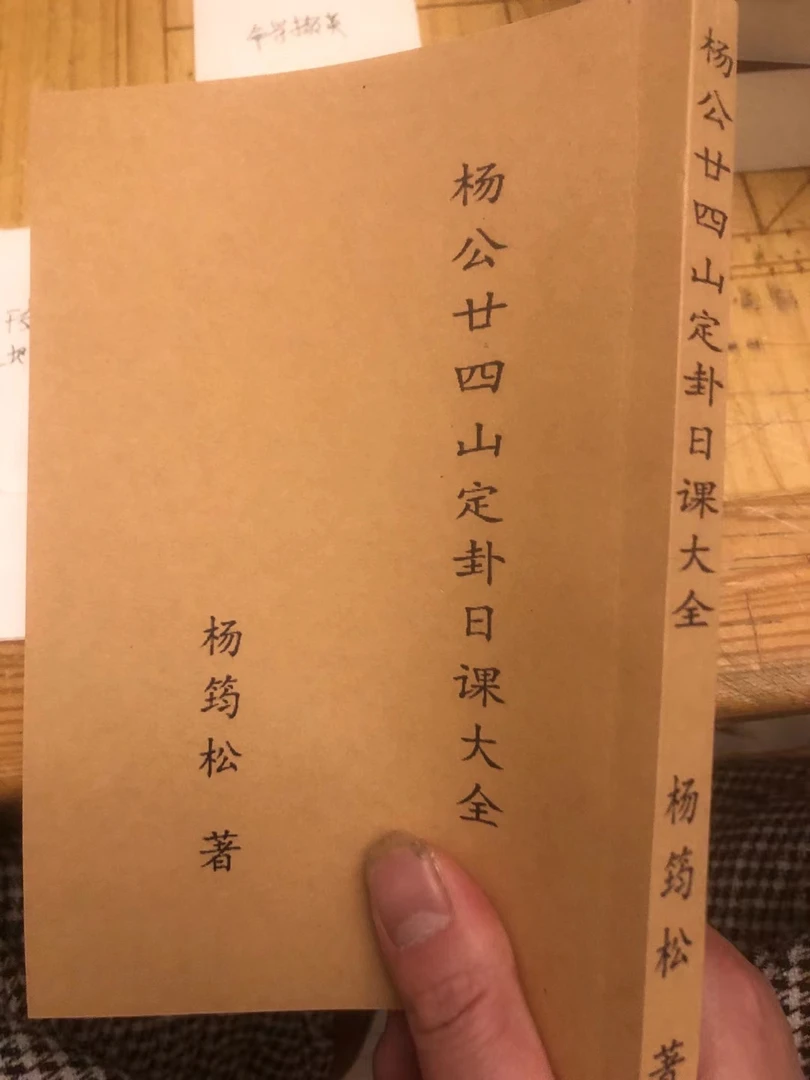 杨公廿四山定卦日课大全
杨筠松 著
杨公廿四山定卦日课大全
杨筠松 著